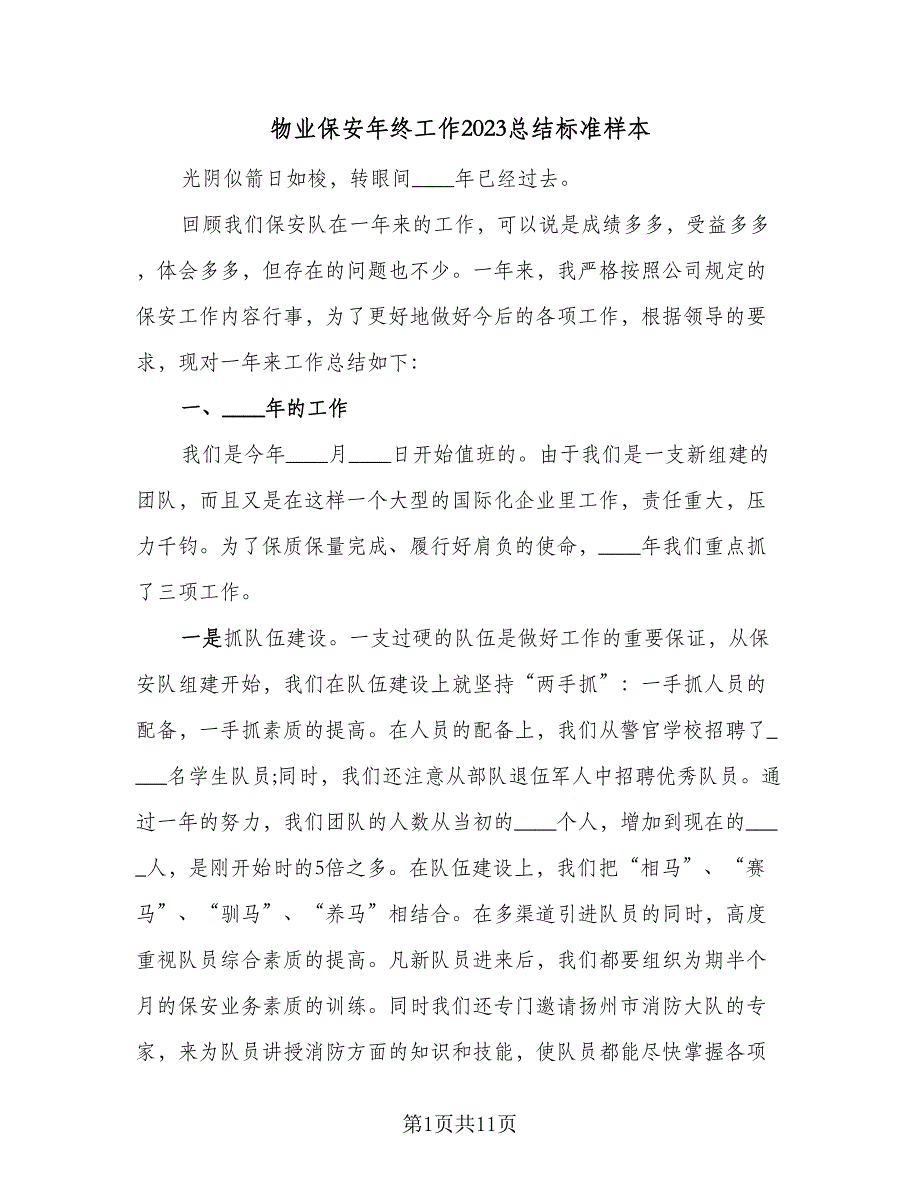 物业保安年终工作2023总结标准样本
光阴似箭日如梭，转眼间____年已经过去。
回顾我们保安队在一年来的工作，可以说是成绩多多，受益多多
，体会多多，但存在的问题也不少。一年来，我严格按照公司规定的
保安工作内容行事，为了更好地做好今后的各项工作，根据领导的要
求，现对一年来工作总结如下：
一、____年的工作
我们是今年____月____日开始值班的。由于我们是一支新组建的
团队，而且又是在这样一个大型的国际化企业里工作，责任重大，压
力千钧。为了保质保量完成、履行好肩负的使命，____年我们重点抓
了三项工作。
一是抓队伍建设。一支过硬的队伍是做好工作的重要保证，从保
安队组建开始，我们在队伍建设上就坚持“两手抓”：一手抓人员的
配备，一手抓素质的提高。在人员的配备上，我们从警官学校招聘了_
___名学生队员;同时，我们还注意从部队退伍军人中招聘优秀队员。通
过一年的努力，我们团队的人数从当初的____个人，增加到现在的___
_人，是刚开始时的5倍之多。在队伍建设上，我们把“相马”、“赛
马”、“驯马”、“养马”相结合。在多渠道引进队员的同时，高度
重视队员综合素质的提高。凡新队员进来后，我们都要组织为期半个
月的保安业务素质的训练。同时我们还专门邀请扬州市消防大队的专
家，来为队员讲授消防方面的知识和技能，使队员都能尽快掌握各项
第1页共11页